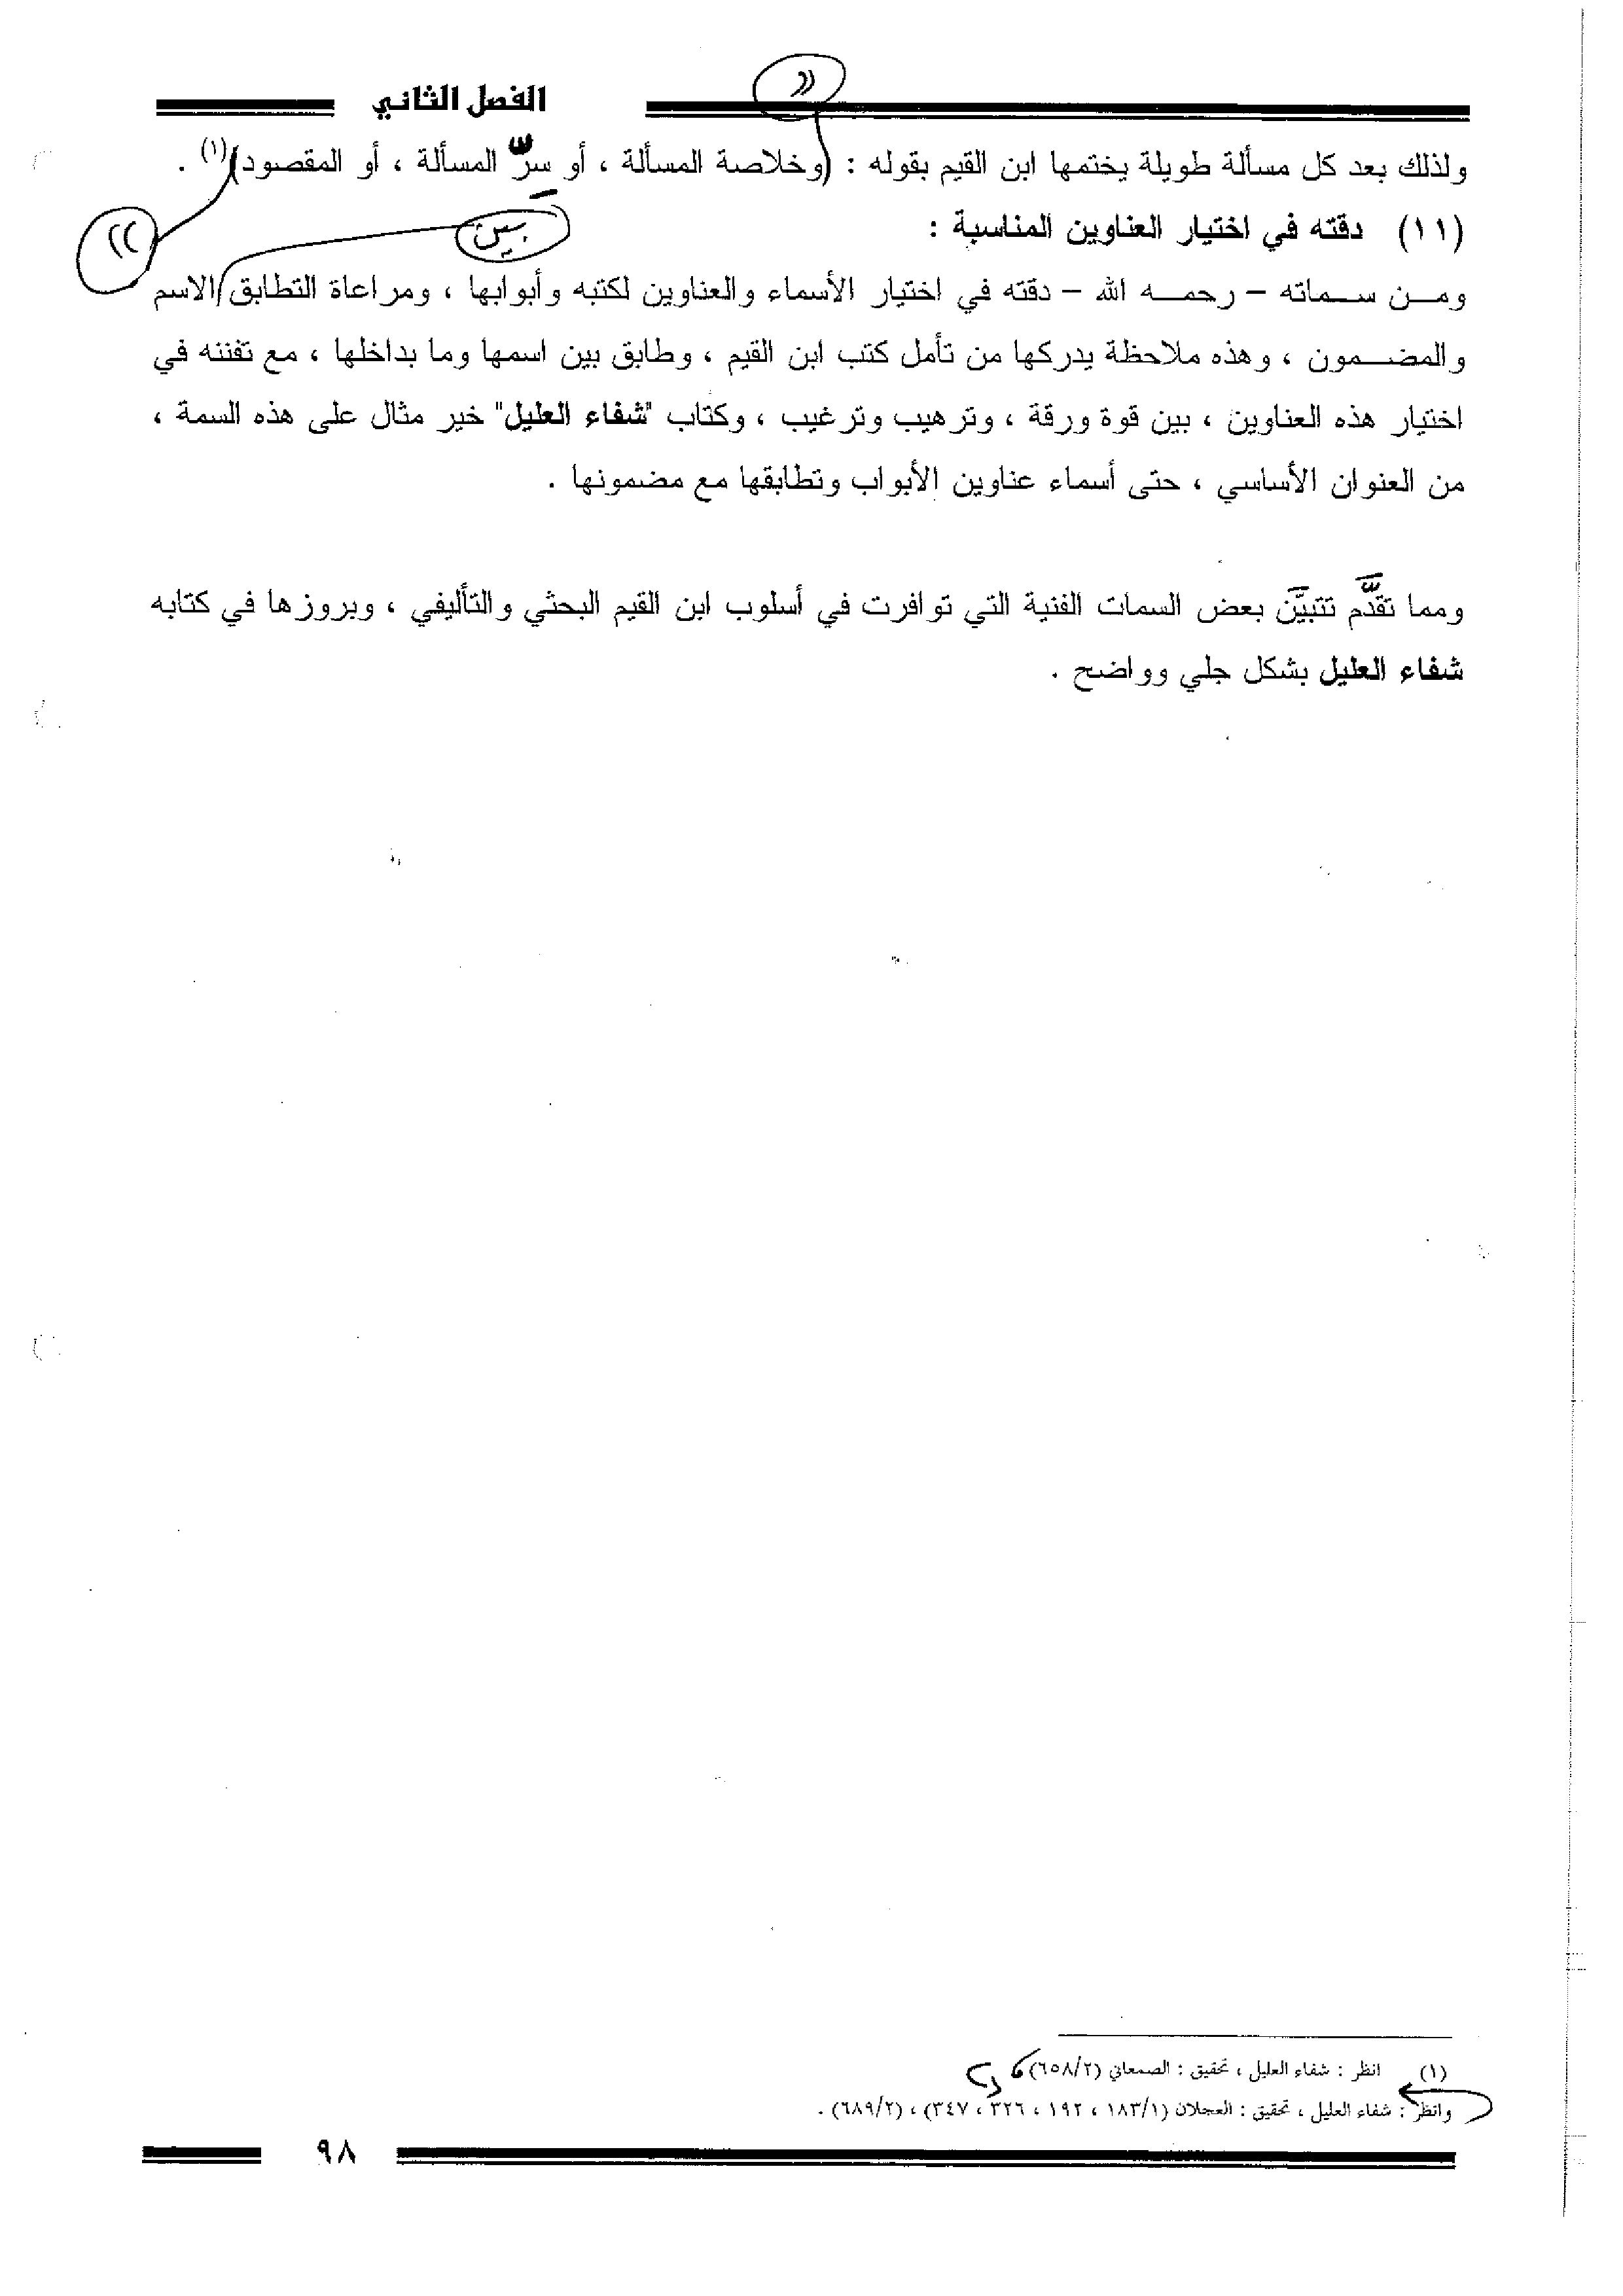 الفصل الثاني
((
ولذلك بعد كل مسألة طويلة يختمها ابن القيم بقوله : (وخلاصة المسألة ، أو سرّ المسألة ، أو المقصود)(١) .
))
(١١) دقته في اختيار العناوين المناسبة :
بين
ومـن سـماته – رحمـه الله – دقته في اختيار الأسماء والعناوين لكتبه وأبوابها ، ومراعاة التطابق الاسم
والمضـمون ، وهذه ملاحظة يدركها من تأمل كتب ابن القيم ، وطابق بين اسمها وما بداخلها ، مع تفننه في
اختيار هذه العناوين ، بين قوة ورقة ، وترهيب وترغيب ، وكتاب "شفاء العليل" خير مثال على هذه السمة ،
من العنوان الأساسي ، حتى أسماء عناوين الأبواب وتطابقها مع مضمونها .
ومما تقدَّم تتبيَّن بعض السمات الفنية التي توافرت في أسلوب ابن القيم البحثي والتأليفي ، وبروزها في كتابه
شفاء العليل بشكل جلي وواضح .
(١) انظر : شفاء العليل ، تحقيق : الصمعاني (٦٥٨/٢)
وانظر : شفاء العليل ، تحقيق : العجلان (١٨٣/١ ، ١٩٢ ، ٣٢٦ ، ٣٤٧) ، (٦٨٩/٢) .
٩٨